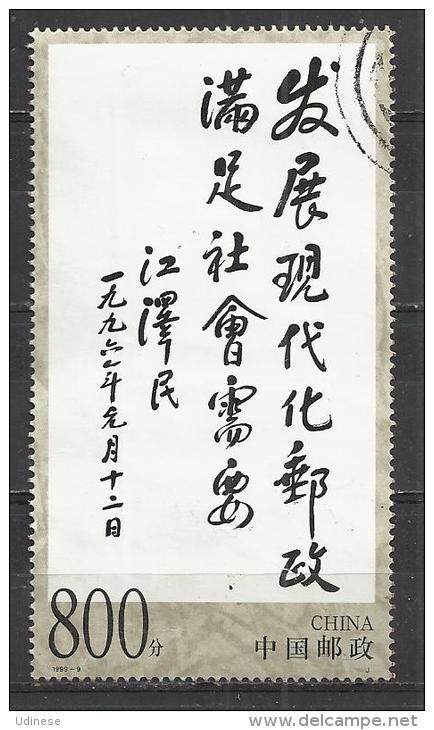 发展現代化郵政
滿足社會需要
江澤民
一九九六年元月十二日
800分
CHINA
中国邮政
1999-9
J
Udinese
www.delcampe.net